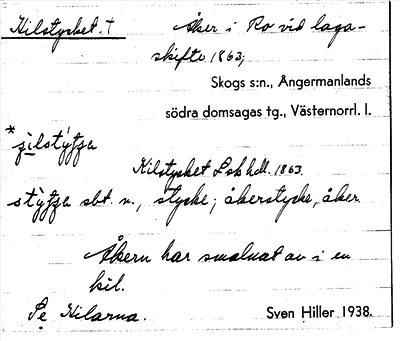 Kilstycket. † Åker i Ro vid laga-
skifte 1863;
Skogs s:n., Ångermanlands
södra domsagas tg., Västernorrl. l.
Kilstycket Lskhdl. 1863.
sbst. n., stycke; åkerstycke, åker.
Åkern har smalnat av i en
kil.
Se Kilarna. Sven Hiller 1938.